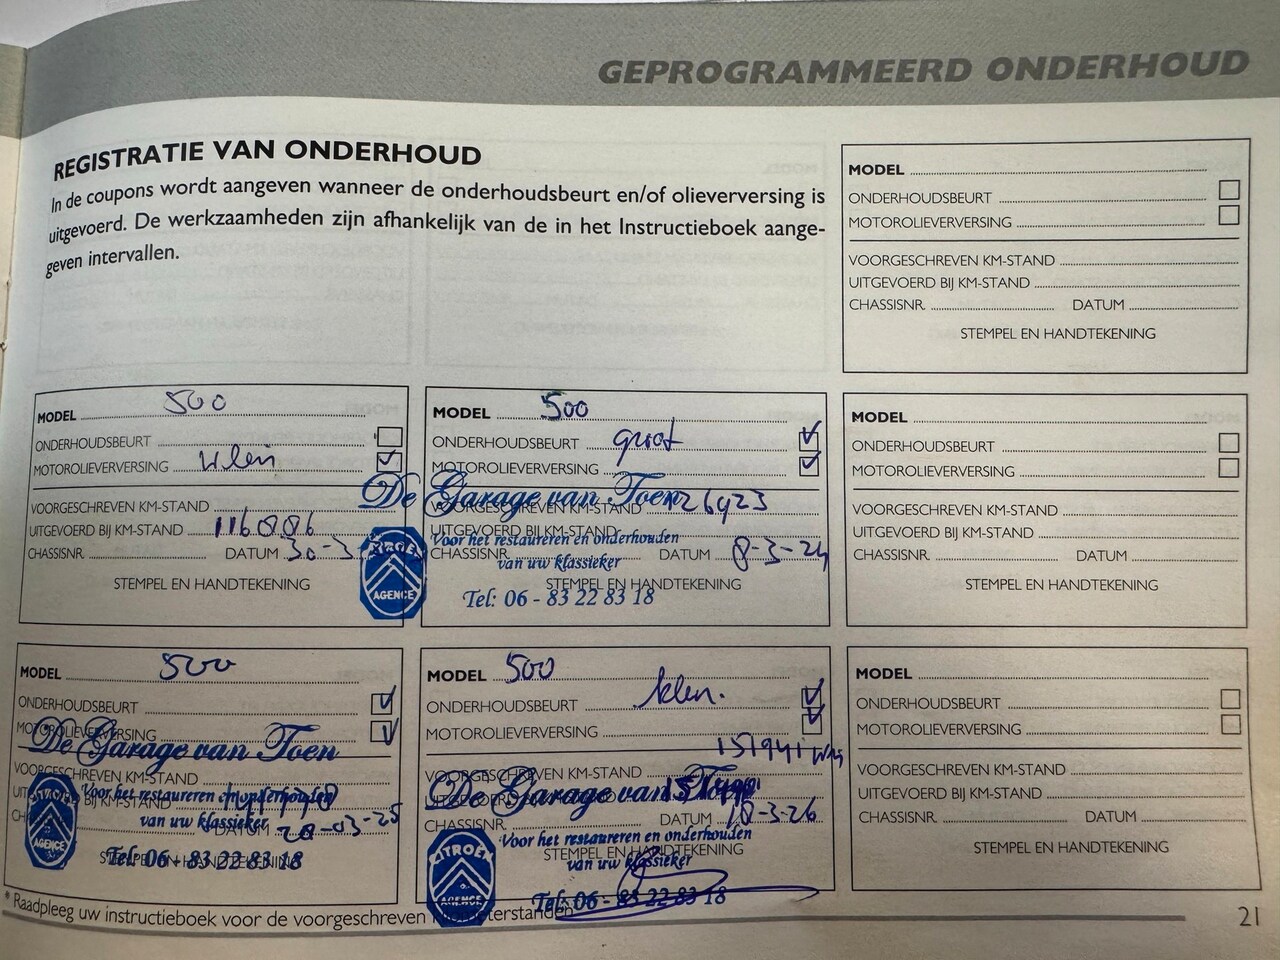 GEPROGRAMMEERD ONDERHOUD
REGISTRATIE VAN ONDERHOUD
In de coupons wordt aangeven wanneer de onderhoudsbeurt en/of olieverversing is
uitgevoerd. De werkzaamheden zijn afhankelijk van de in het Instructieboek aange-
geven intervallen.
MODEL
ONDERHOUDSBEURT
MOTOROLIEVERVERSING
VOORGESCHREVEN KM-STAND
UITGEVOERD BIJ KM-STAND
CHASSISNR. DATUM
STEMPEL EN HANDTEKENING
MODEL 500
ONDERHOUDSBEURT
MOTOROLIEVERVERSING klein
VOORGESCHREVEN KM-STAND
UITGEVOERD BIJ KM-STAND 116086
CHASSISNR. DATUM 30-3
STEMPEL EN HANDTEKENING
MODEL 500
ONDERHOUDSBEURT groot
MOTOROLIEVERVERSING
De Garage van Toen
VOORGESCHREVEN KM-STAND 126923
UITGEVOERD BIJ KM-STAND
Voor het restaureren en onderhouden
CHASSISNR. DATUM 8-3-24
van uw klassieker
STEMPEL EN HANDTEKENING
Tel: 06 - 83 22 83 18
CITROËN
AGENCE
MODEL
ONDERHOUDSBEURT
MOTOROLIEVERVERSING
VOORGESCHREVEN KM-STAND
UITGEVOERD BIJ KM-STAND
CHASSISNR. DATUM
STEMPEL EN HANDTEKENING
MODEL 500
ONDERHOUDSBEURT
MOTOROLIEVERVERSING
De Garage van Toen
VOORGESCHREVEN KM-STAND
Voor het restaureren en onderhouden
UITGEVOERD BIJ KM-STAND
van uw klassieker
DATUM 28-03-25
STEMPEL EN HANDTEKENING
Tel: 06 - 83 22 83 18
AGENCE
MODEL 500
ONDERHOUDSBEURT klein.
MOTOROLIEVERVERSING
151941
VOORGESCHREVEN KM-STAND
De Garage van Toen
UITGEVOERD BIJ KM-STAND
CHASSISNR. DATUM 18-3-26
Voor het restaureren en onderhouden
STEMPEL EN HANDTEKENING
van uw klassieker
Tel: 06 - 83 22 83 18
CITROËN
AGENCE
MODEL
ONDERHOUDSBEURT
MOTOROLIEVERVERSING
VOORGESCHREVEN KM-STAND
UITGEVOERD BIJ KM-STAND
CHASSISNR. DATUM
STEMPEL EN HANDTEKENING
* Raadpleeg uw instructieboek voor de voorgeschreven kilometerstanden
21